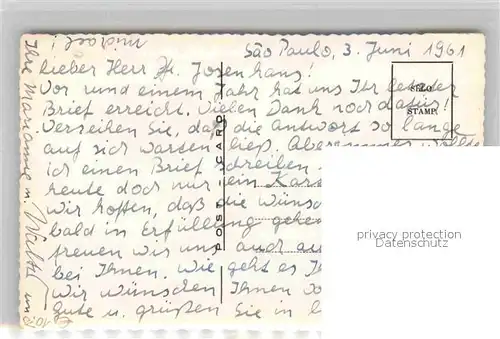 São Paulo, 3. Juni 1961
lieber Herr Pf. Josenhans!
Vor rund einem Jahr hat uns Ihr letzter
Brief erreicht. Vielen Dank noch dafür!
Verzeihen Sie, daß die Antwort so lange
auf sich warten ließ. Aber immer wollte
ich einen Brief schreiben.
heute doch nur ein Kar
wir hoffen, daß die wüns
bald in Erfüllung gehe
freuen wir uns auch au
bei Ihnen. Wie geht es Ih
Wir wünschen Ihnen
Gute u. grüßen Sie in
Ihre Marianne u. Walter und
SELO
STAMP
POST-CARD
privacy protection
Datenschutz